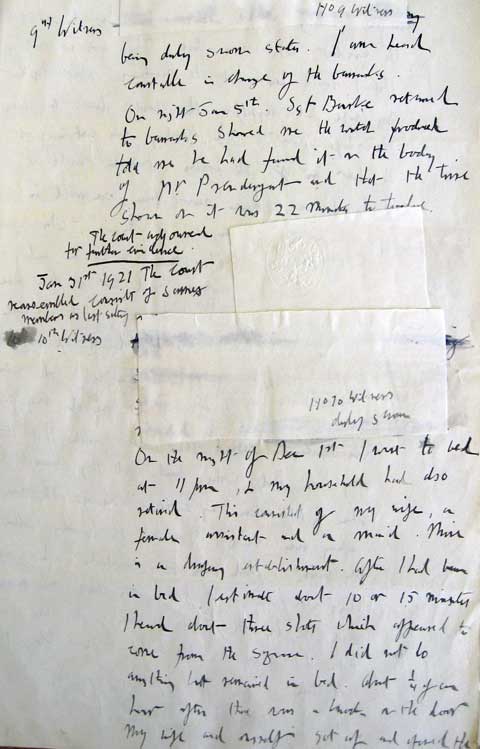 9th Witness
No 9 Witness
being duly sworn states. I am head
constable in charge of the barracks.
On night Jan 5th. Sgt Burke returned
to barracks showed me the watch produced
told me he had found it on the body
of Mr Prendergast and that the time
shown on it was 22 minutes to twelve.
The court adjourned
for further evidence.
Jan 31st 1921 The Court
reassembled consists of same
members as last sitting
10th Witness
No 10 Witness
duly sworn
On the night of Dec 1st I went to bed
at 11 pm, & my household had also
retired. This consisted of my wife, a
female assistant and a maid. Mine
is a drapery establishment. After I had been
in bed I estimate about 10 or 15 minutes
I heard about three shots which appeared to
come from the square. I did not do
anything but remained in bed. About ¼ of an
hour after there was a knock on the door
My wife and myself got up and opened the